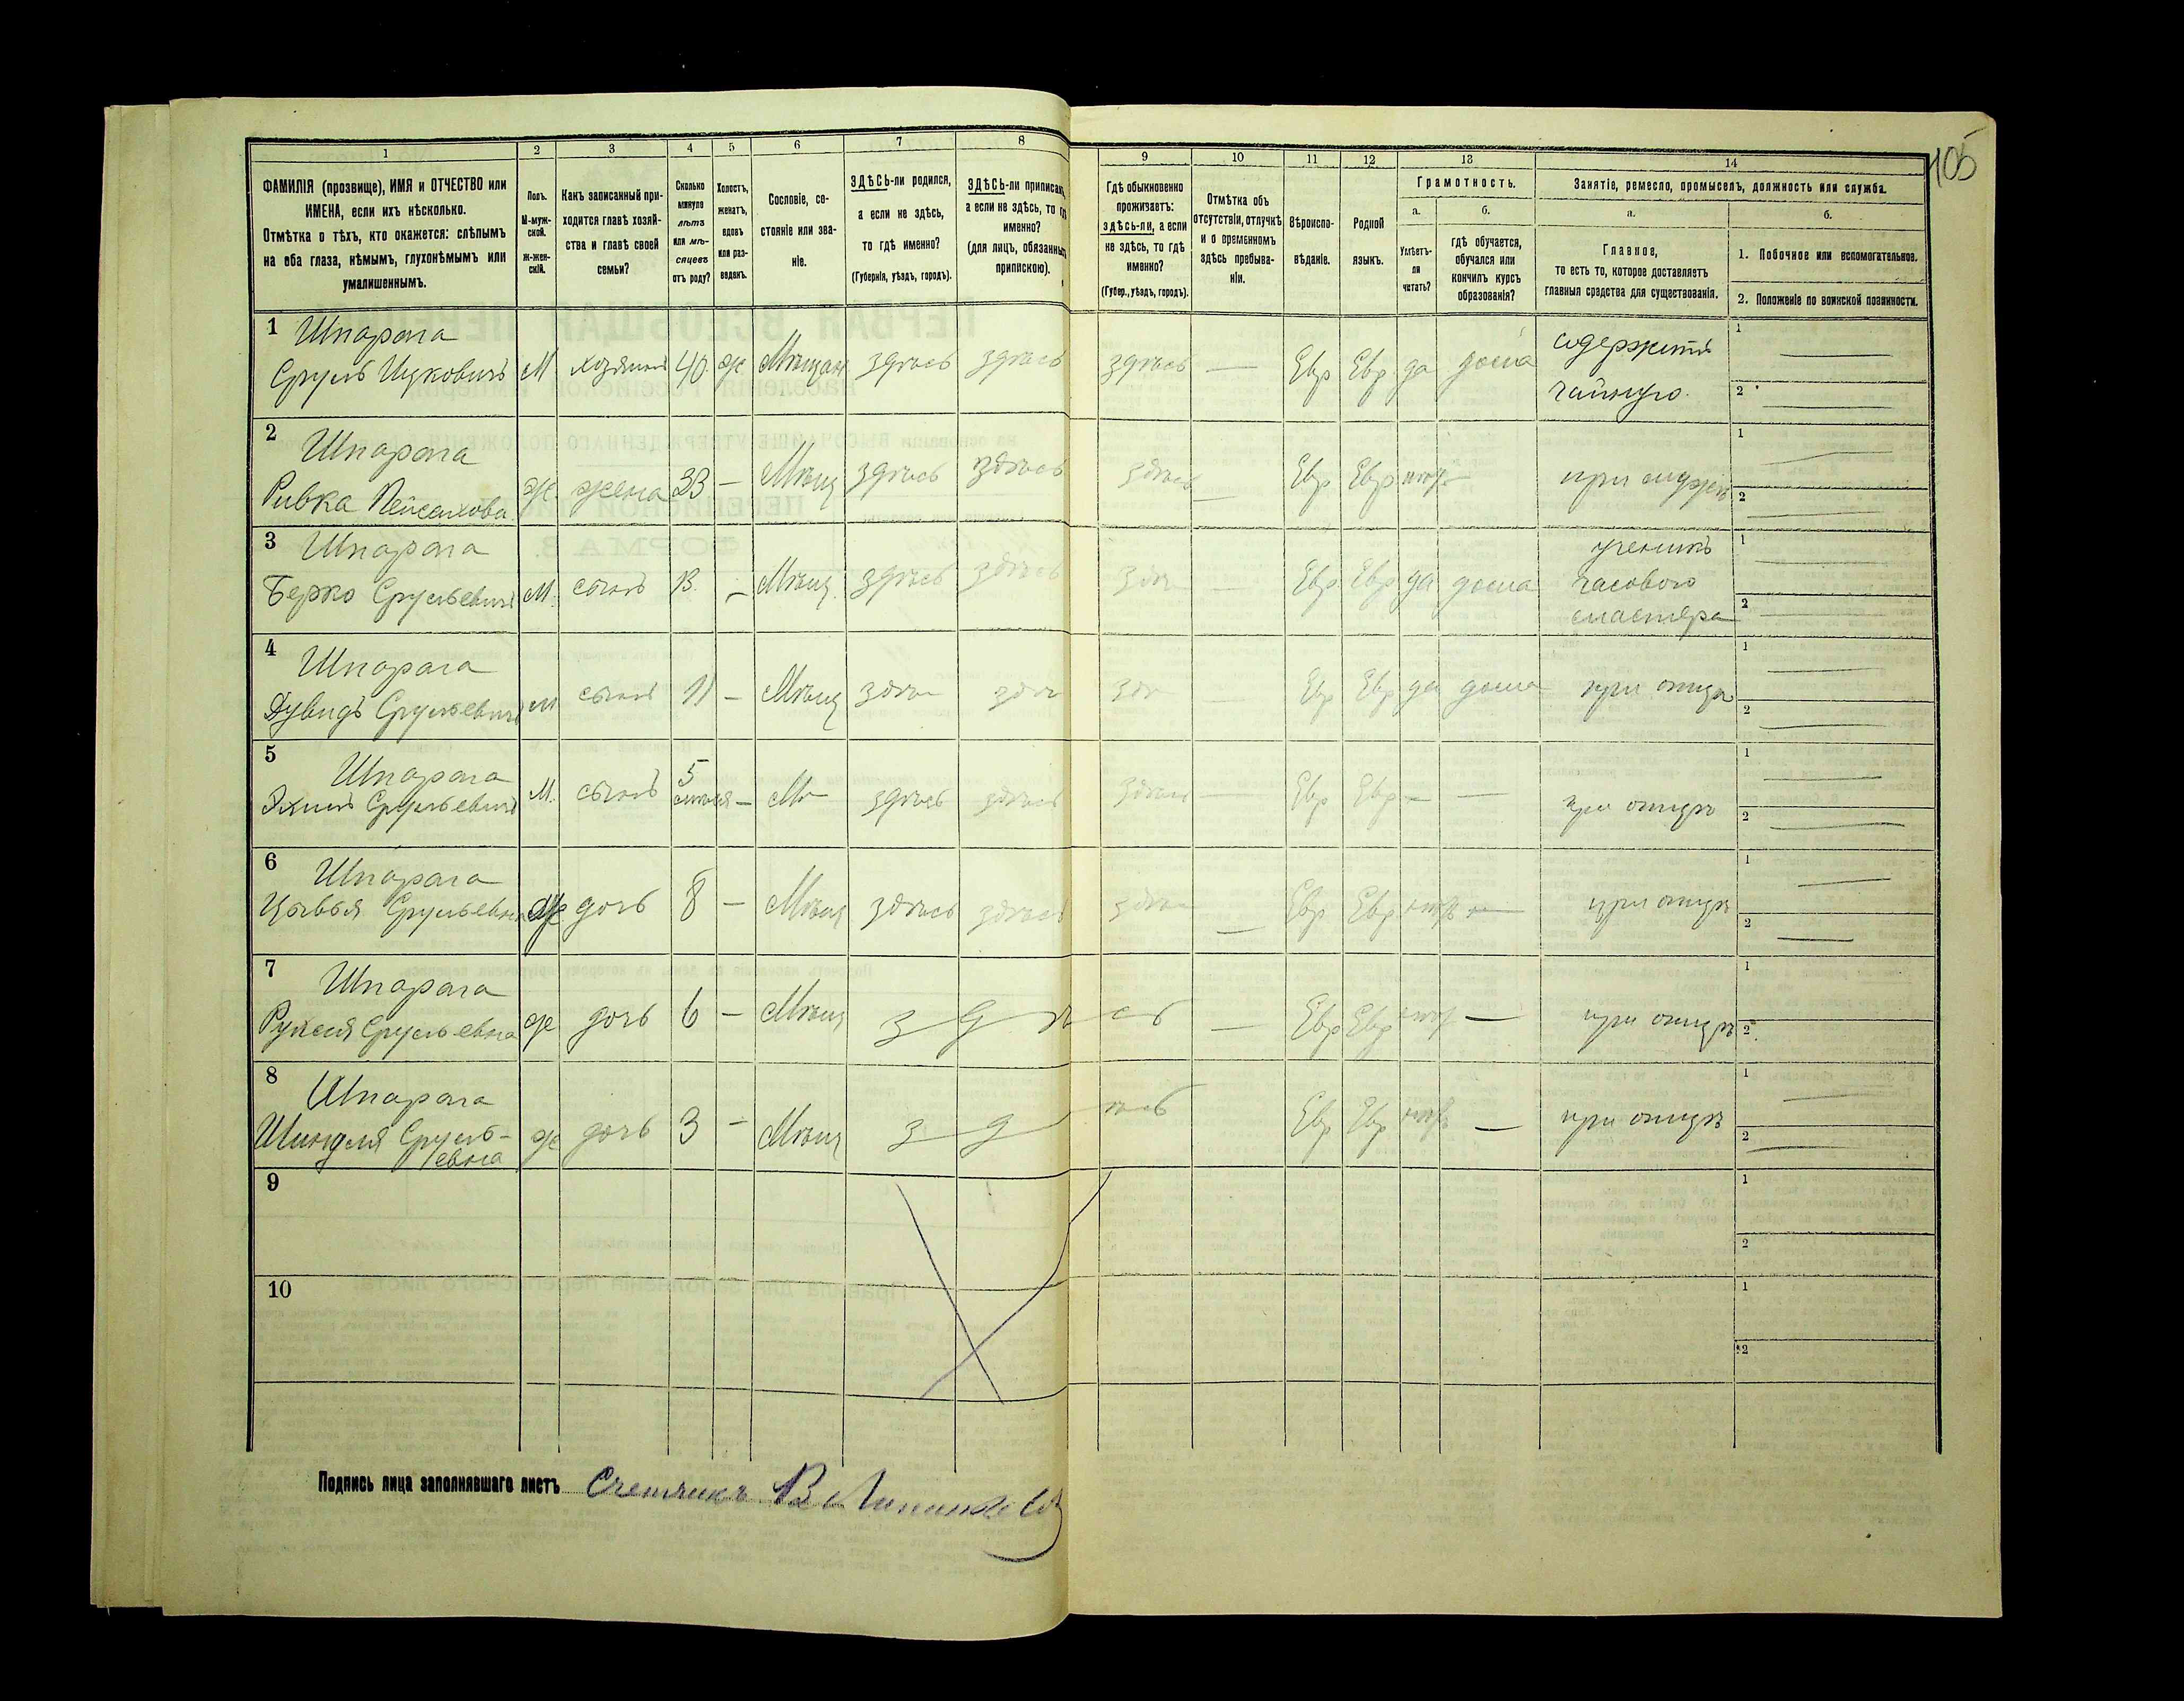 105
1 2 3 4 5 6 7 8 9 10 11 12 13 14
ФАМИЛІЯ (прозвище), ИМЯ и ОТЧЕСТВО или
ИМЕНА, если ихъ нѣсколько.
Отмѣтка о тѣхъ, кто окажется: слѣпымъ
на оба глаза, нѣмымъ, глухонѣмымъ или
умалишеннымъ.
Полъ.
М-муж-
ской.
Ж-жен-
скій.
Какъ записанный при-
ходится главѣ хозяй-
ства и главѣ своей
семьи?
Сколько
минуло
лѣтъ
или мѣ-
сяцевъ
отъ роду?
Холостъ,
женатъ,
вдовъ
или раз-
веденъ.
Сословіе, со-
стояніе или зва-
ніе.
ЗДѢСЬ-ли родился,
а если не здѣсь,
то гдѣ именно?
(Губернія, уѣздъ, городъ).
ЗДѢСЬ-ли приписанъ,
а если не здѣсь, то гдѣ
именно?
(для лицъ, обязанныхъ
припискою).
Гдѣ обыкновенно
проживаетъ:
здѣсь-ли, а если
не здѣсь, то гдѣ
именно?
(Губер., уѣздъ, городъ).
Отмѣтка объ
отсутствіи, отлучкѣ
и о временномъ
здѣсь пребыва-
ніи.
Вѣроиспо-
вѣданіе.
Родной
языкъ.
Грамотность.
а.
Умѣетъ-
ли
читать?
б.
гдѣ обучается,
обучался или
кончилъ курсъ
образованія?
Занятіе, ремесло, промыселъ, должность или служба.
а.
Главное,
то есть то, которое доставляетъ
главныя средства для существованія.
б.
1. Побочное или вспомогательное.
2. Положеніе по воинской повинности.
1 Шпарага
Сруль Ицковичъ М хозяинъ 40 ж Мѣщан здѣсь здѣсь здѣсь — Евр Евр да дома содержитъ
чайную.
1 —
2 —
2 Шпарага
Ривка Пейсахова Ж. жена 33 — Мѣщ здѣсь здѣсь здѣсь — Евр Евр при мужѣ
1 —
2 —
3 Шпарага
Берко Срульевичъ М. сынъ 13. — Мѣщ. здѣсь здѣсь — Евр Евр да дома ученикъ
часового
мастера
1 —
2 —
4 Шпарага
Дувидъ Срульевичъ М сынъ 11 — Мѣщ — Евр Евр да дома при отцѣ
1 —
2 —
5 Шпарага
Срульевичъ М. сынъ 5 — здѣсь здѣсь здѣсь — Евр Евр — — при отцѣ
1 —
2 —
6 Шпарага
Цывья Срульевна ж дочь 8 — Мѣщ здѣсь здѣсь — Евр Евр — при отцѣ
1 —
2 —
7 Шпарага
Срульевна ж дочь 6 — Мѣщ здѣсь — Евр Евр — при отцѣ
1
2
8 Шпарага
Шиндля Сруль-
евна ж дочь 3 — Мѣщ здѣсь Евр Евр — при отцѣ
1 —
2 —
9
1
2
10
1
2
Подпись лица заполнявшаго листъ Счетчикъ